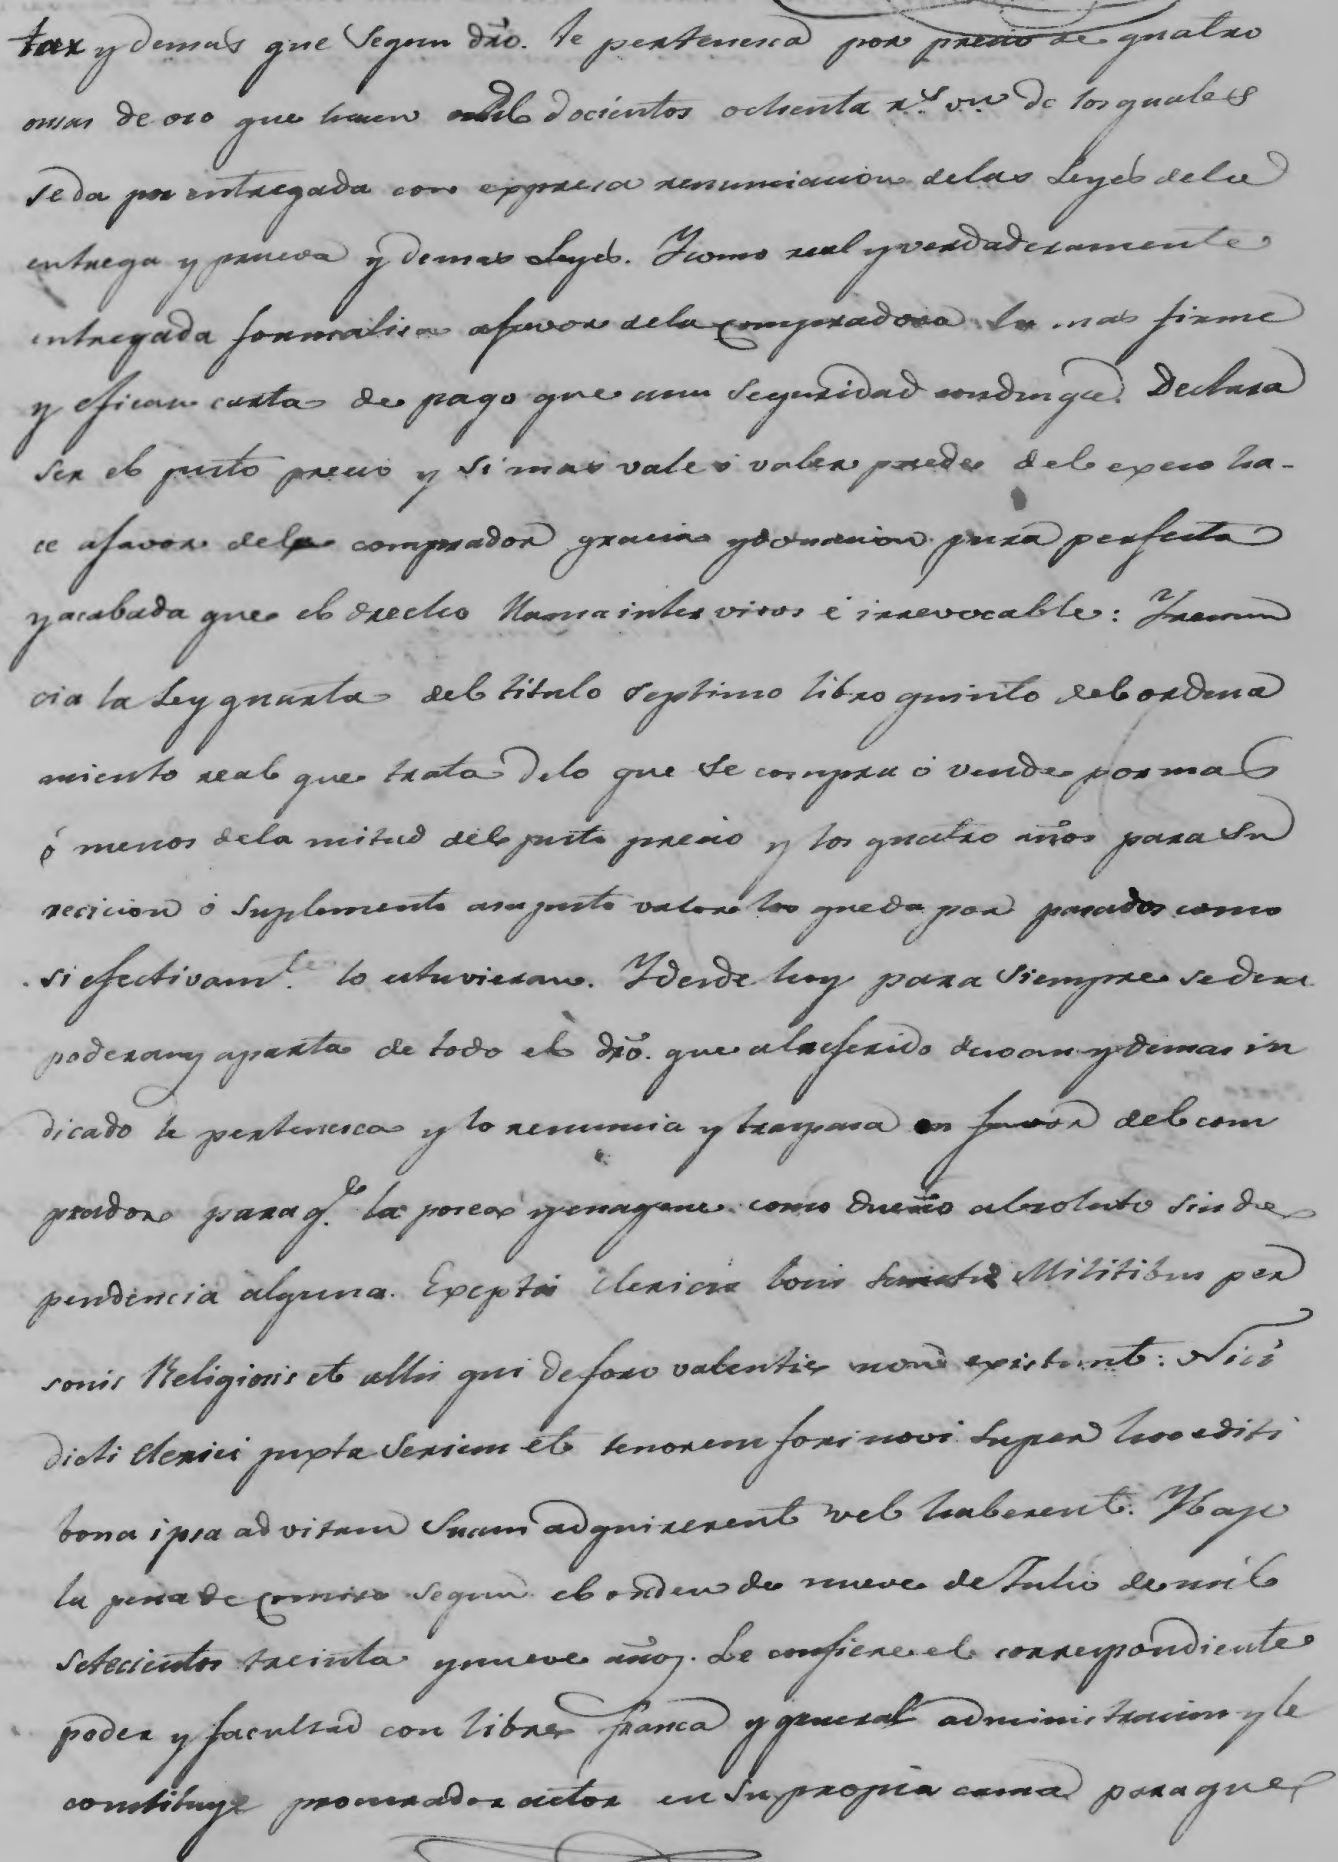 tax y demas que Segun dro. le pertenesca por precio de quatro
onsas de oro que hacen mil docientos ochenta rs. vn. de los quales
se da por entregada con expresa renunciacion delas Leyes dela
entrega y prueva y demas Leyes. Y como real y verdaderamente
entregada formalisa afavor dela compradora la mas firme
y eficau carta de pago que asu Seguridad condusga. Declara
ser el justo precio y si mas vale o valer puede del exeso ha-
ce afavor del comprador gracia y donacion pura perfecta
y acabada que el drecho llama inter vivos é irrevocable: Y renun
cia la Ley quarta del titulo septimo libro quinto del ordena
miento real que trata delo que se compra ó vende por mas
ó menos dela mitad del justo precio y los quatro años para su
recicion ó Suplemento asu justo valor los queda por pasados como
si efectivamte. lo estuvieran. Y desde hoy para Siempre se desa
poderan y aparta de todo el dro. que al referido desvan y demas in
dicado le pertenesca y lo renuncia y traspasa en favor del com
prador para qe. la posea y enagene como dueño absoluto sin de
pendencia alguna. Exeptis clericis locis Sanctis Militibus per
sonis Religiosis et allis qui de foro valentie non existunt: Nisi
dicti clerici juxta Seriem et tenorem fori novi Super hoc editi
bona ipsa ad vitam Suam adquirerent vel haberent. Y bajo
la pena de comiso segun el orden de nueve de Julio de mil
setecientos treinta y nueve años. Le confiere el correspondiente
poder y facultad con libre franca y general administracion y le
constituye procurador actor en Su propia causa para que